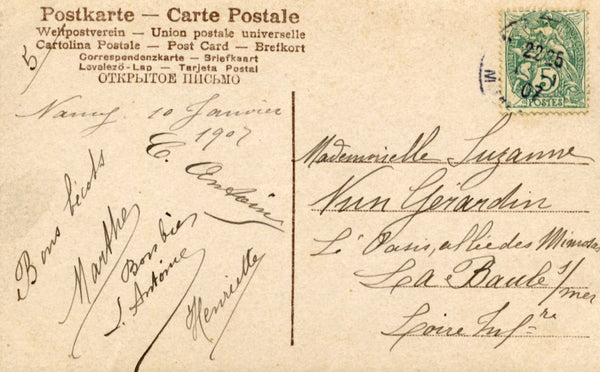 Postkarte — Carte Postale
Weltpostverein — Union postale universelle
Cartolina Postale — Post Card — Brefkort
Correspondenzkarte — Briefkaart
Levelező-Lap — Tarjeta Postal
ОТКРЫТОЕ ПИСЬМО
5
22 25
07
5
POSTES
Nancy 10 Janvier
1907
Bons bécots
Marthe
L. Antoine
Henriette
Mademoiselle Suzanne
Gérardin
allée des Mimosas
La Baule s/mer
Loire Infre